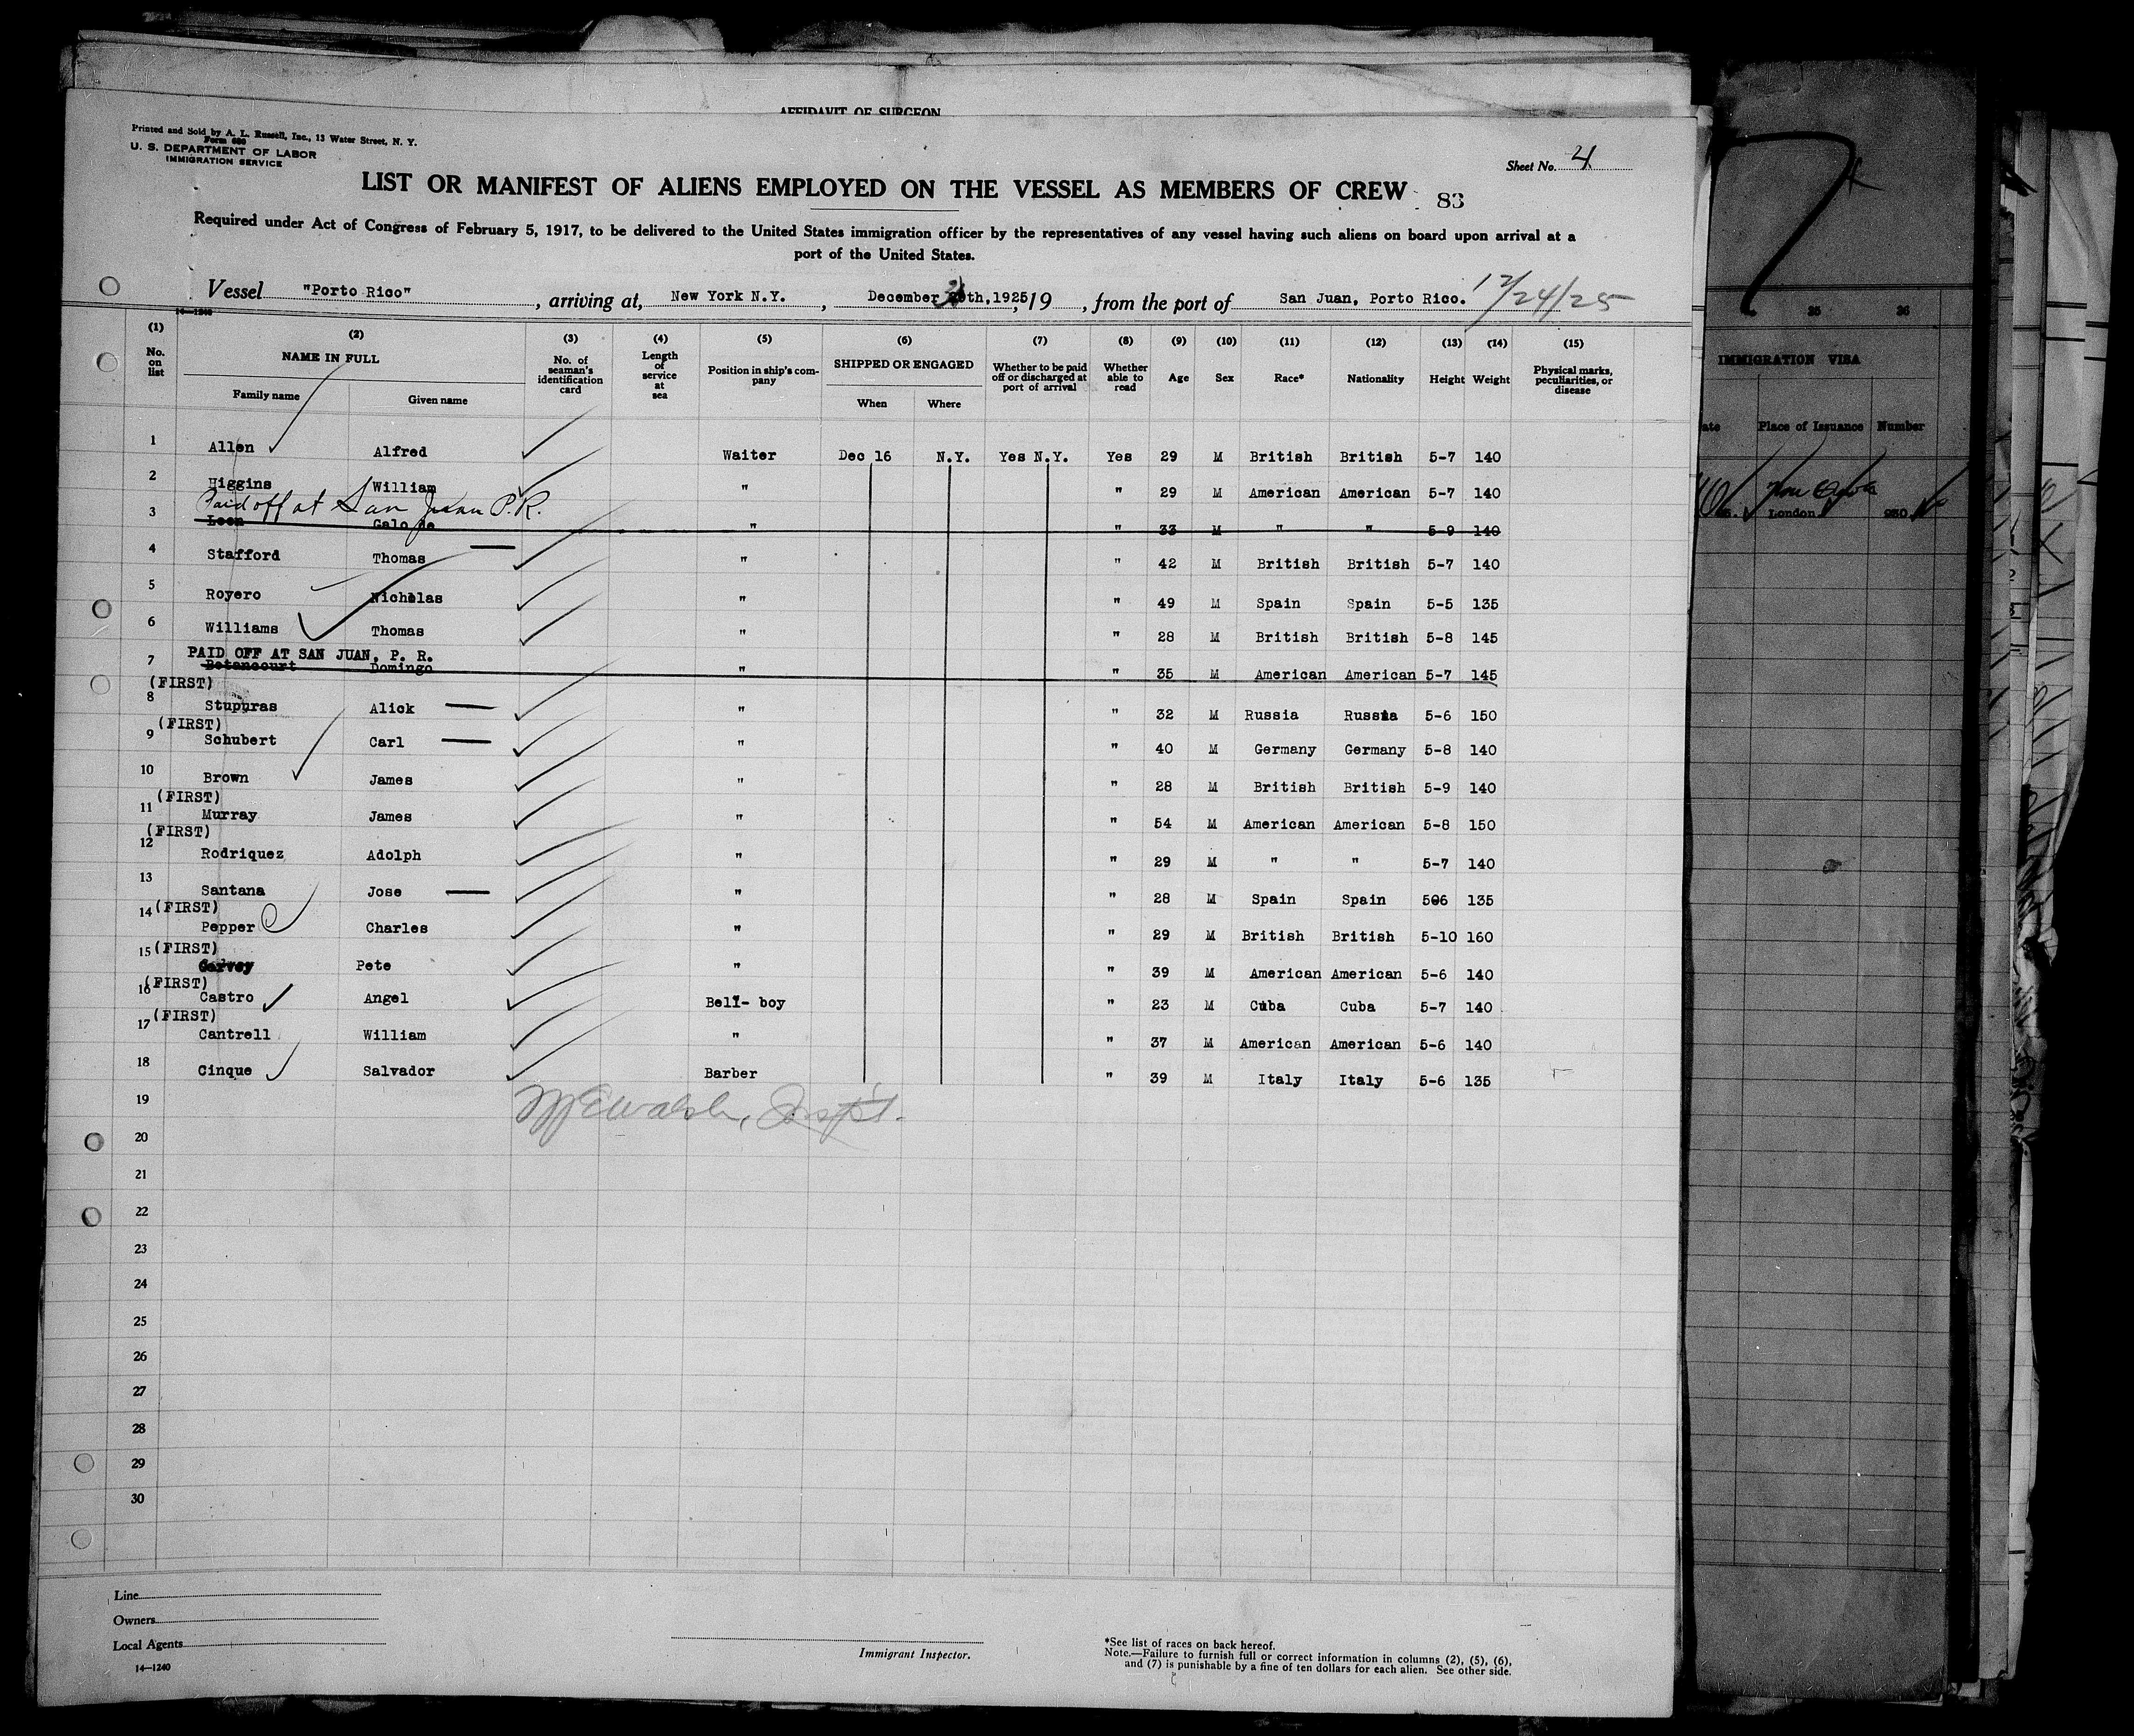 AFFIDAVIT OF SURGEON
Printed and Sold by A. L. Russell, Inc., 13 Water Street, N. Y.
Form 680
U. S. DEPARTMENT OF LABOR
IMMIGRATION SERVICE
Sheet No. 4
LIST OR MANIFEST OF ALIENS EMPLOYED ON THE VESSEL AS MEMBERS OF CREW 83
Required under Act of Congress of February 5, 1917, to be delivered to the United States immigration officer by the representatives of any vessel having such aliens on board upon arrival at a
port of the United States.
Vessel "Porto Rico", arriving at, New York N.Y., December th,1925, 19 , from the port of San Juan, Porto Rico. 12/24/25
14—1240
(1) (2) (3) (4) (5) (6) (7) (8) (9) (10) (11) (12) (13) (14) (15)
No. on list NAME IN FULL No. of seaman's identification card Length of service at sea Position in ship's company SHIPPED OR ENGAGED Whether to be paid off or discharged at port of arrival Whether able to read Age Sex Race* Nationality Height Weight Physical marks, peculiarities, or disease
Family name Given name When Where
1 Allen Alfred Waiter Dec 16 N.Y. Yes N.Y. Yes 29 M British British 5-7 140
2 Higgins William " " 29 M American American 5-7 140
Paid off at San Juan P.R.
3 Leon Galo de " " 33 M " " 5-9 140
4 Stafford Thomas " " 42 M British British 5-7 140
5 Royero Nicholas " " 49 M Spain Spain 5-5 135
6 Williams Thomas " " 28 M British British 5-8 145
PAID OFF AT SAN JUAN, P. R.
7 Betancourt Domingo " " 35 M American American 5-7 145
(FIRST)
8 Stupuras Alick " " 32 M Russia Russia 5-6 150
(FIRST)
9 Schubert Carl " " 40 M Germany Germany 5-8 140
10 Brown James " " 28 M British British 5-9 140
(FIRST)
11 Murray James " " 54 M American American 5-8 150
(FIRST)
12 Rodriquez Adolph " " 29 M " " 5-7 140
13 Santana Jose " " 28 M Spain Spain 506 135
(FIRST)
14 Pepper Charles " " 29 M British British 5-10 160
(FIRST)
15 Garvey Pete " " 39 M American American 5-6 140
(FIRST)
16 Castro Angel Bell- boy " 23 M Cuba Cuba 5-7 140
(FIRST)
17 Cantrell William " " 37 M American American 5-6 140
18 Cinque Salvador Barber " 39 M Italy Italy 5-6 135
19
20
21
22
23
24
25
26
27
28
29
30
Line
Owners
Local Agents
14—1240
Immigrant Inspector.
*See list of races on back hereof.
Note.—Failure to furnish full or correct information in columns (2), (5), (6),
and (7) is punishable by a fine of ten dollars for each alien. See other side.
25 26
IMMIGRATION VISA
Place of Issuance Number
London